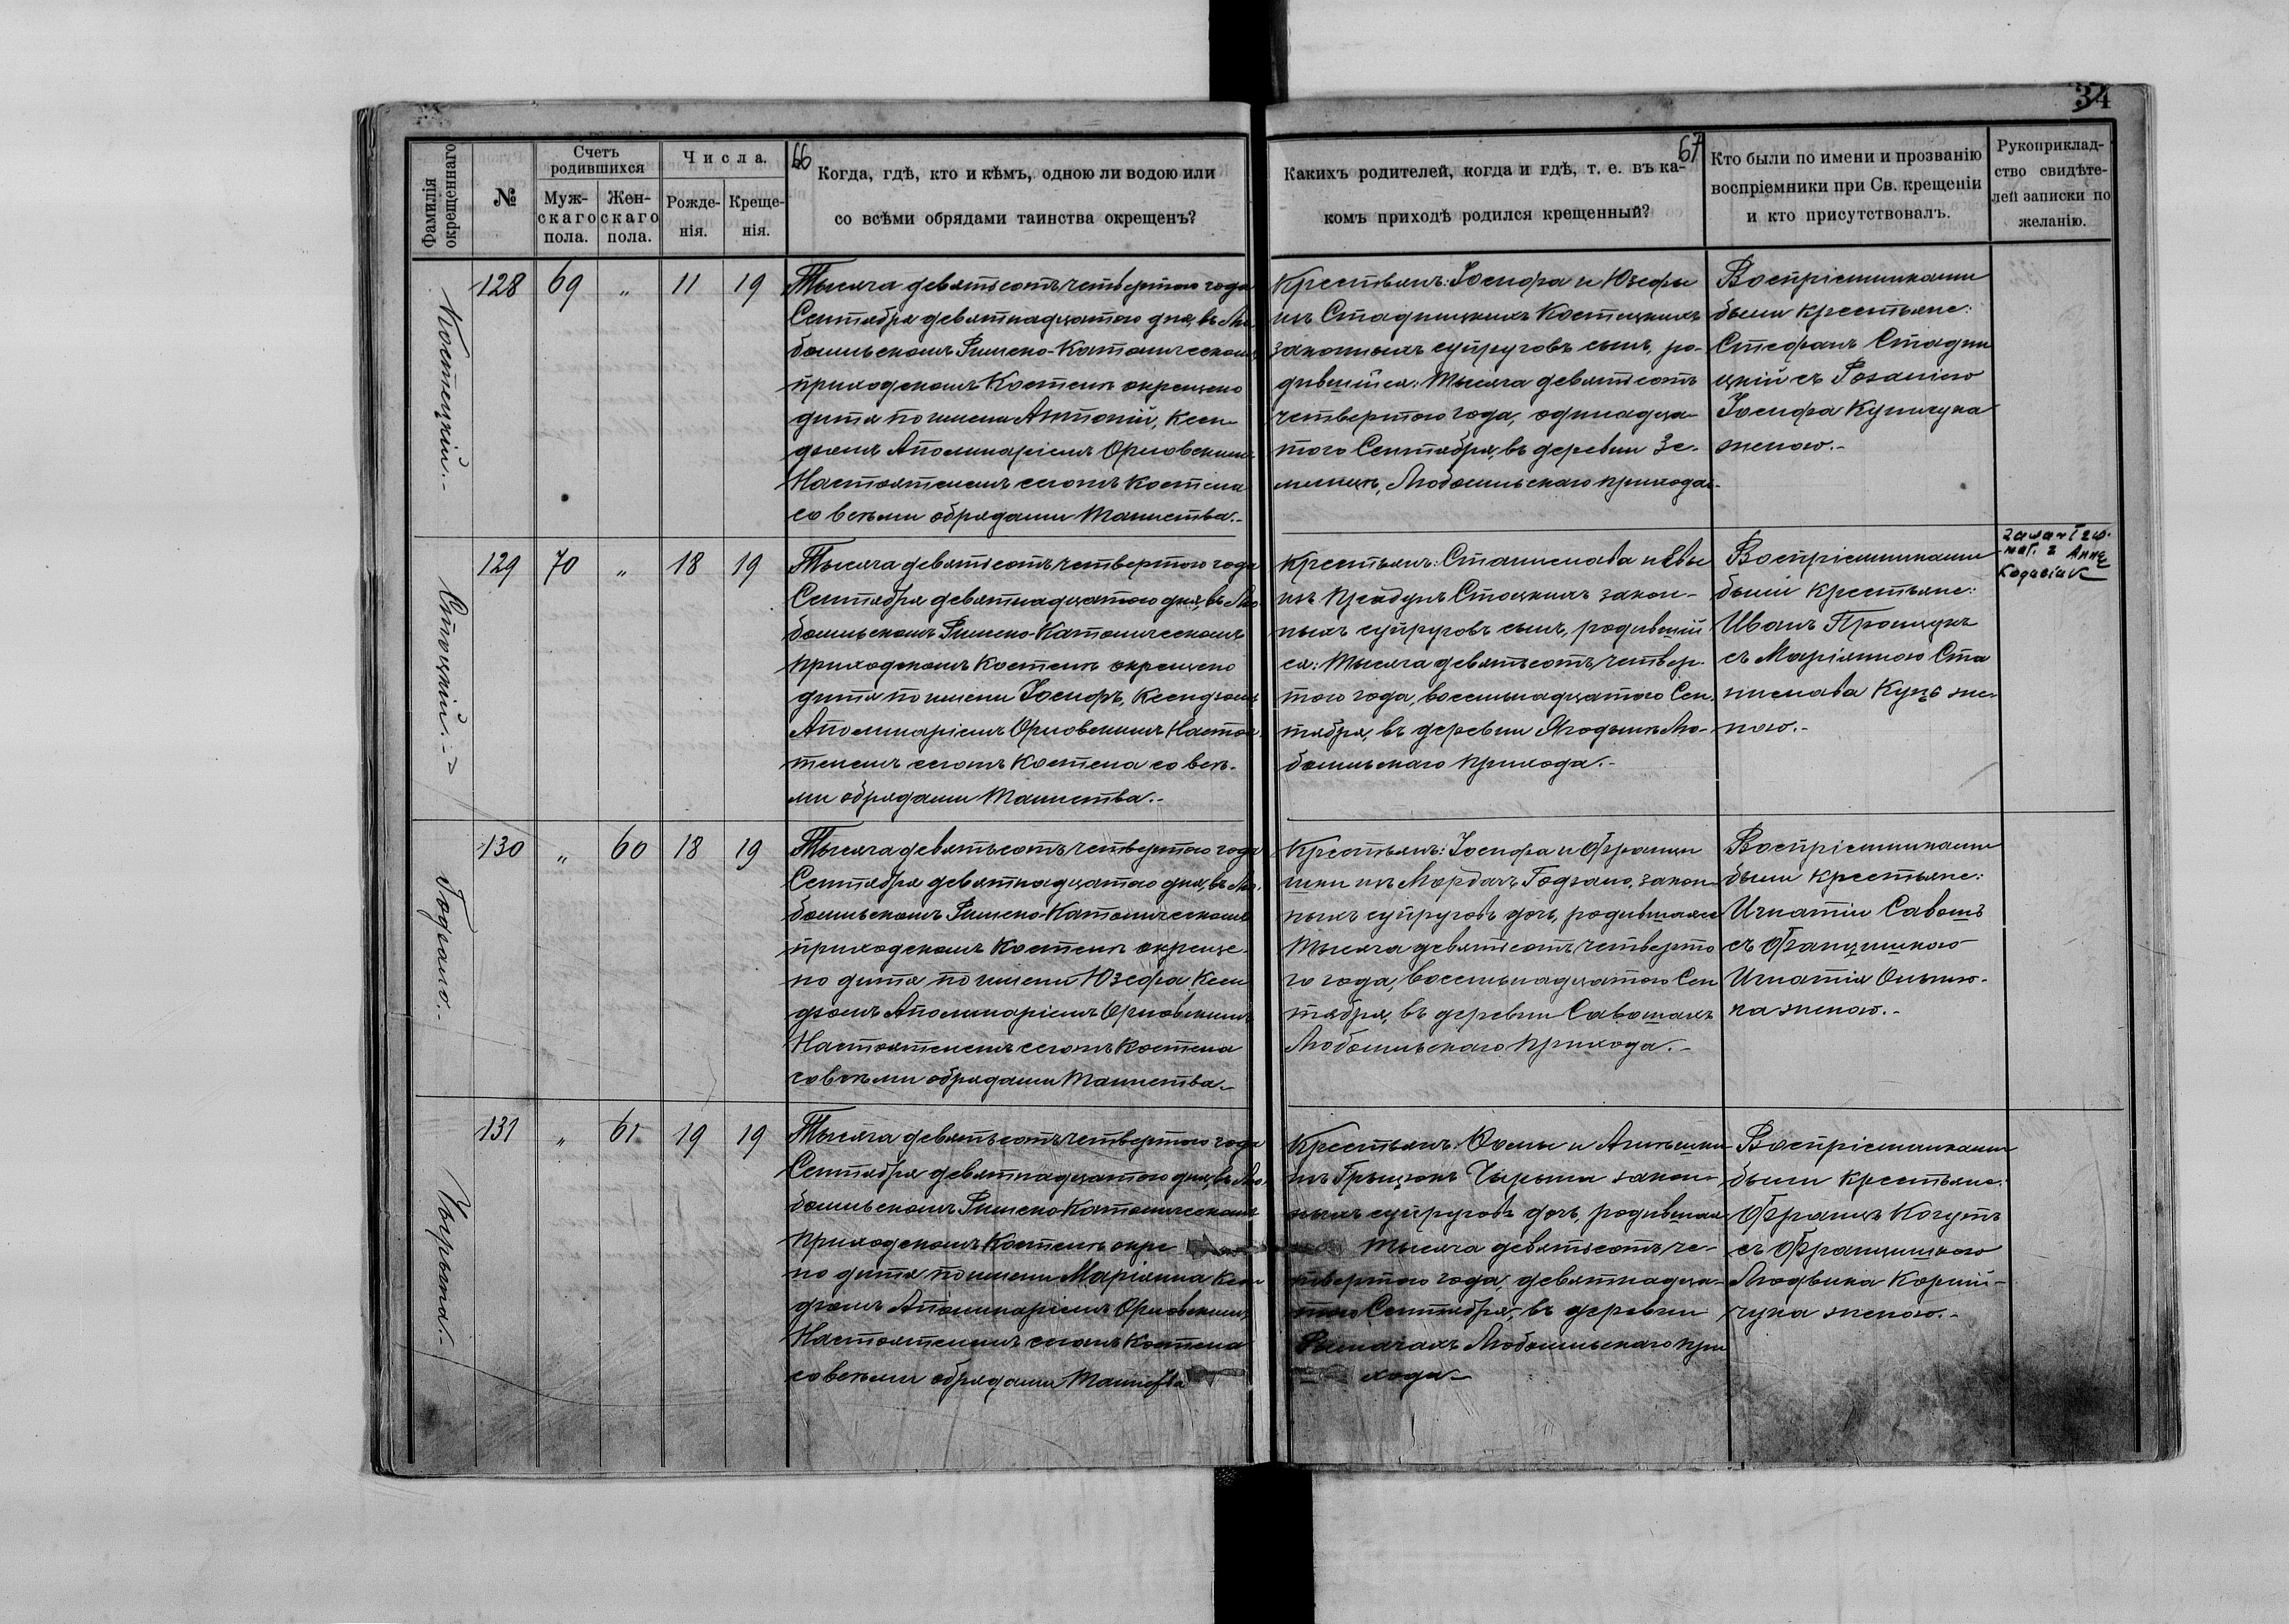 34
66
67
Фамилія окрещеннаго
№
Счетъ родившихся
Муж-
скаго
пола.
Жен-
скаго
пола.
Числа.
Рожде-
нія.
Креще-
нія.
Когда, гдѣ, кто и кѣмъ, одною ли водою или
со всѣми обрядами таинства окрещенъ?
Каких​ъ родителей, когда и гдѣ, т. е. въ ка-
комъ приходѣ родился крещенный?
Кто были по имени и прозванію
воспріемники при Св. крещеніи
и кто присутствовалъ.
Рукоприклад-
ство свидѣте-
лей записки по
желанію.
Костецкій.-
128 69 " 11 19
Тысяча девятьсотъ четвертого года
Сентября девятнадцатого дня, въ Лю-
бомльскомъ Римско-Католическомъ
приходскомъ Костелѣ окрещено
дитя по имени Антоній, Ксен-
дзомъ Аполинаріемъ Орловскимъ
Настоятелемъ сегожъ Костела
со всѣми обрядами Таинства.-
Крестьянъ: Іосифа и Юзефы
изъ Стадницкихъ Костецкихъ
законныхъ супруговъ сынъ, ро-
дившійся: Тысяча девятьсотъ
четвертого года, одинадца-
того Сентября, въ деревни Зе-
Любомльскаго прихода.-
Воспріемниками
были крестьяне:
Стефанъ Стадни
цкій съ Розаліею
Іосифа Куничука
женою.-
Стоцкій.-
129 70 " 18 19
Тысяча девятьсотъ четвертого года
Сентября девятнадцатого дня, въ Лю-
бомльскомъ Римско-Католическомъ
приходскомъ Костелѣ окрещено
дитя по имени Іосифъ, Ксендзомъ
Аполинаріемъ Орловскимъ Настоя-
телемъ сегожъ Костела со всѣ-
ми обрядами Таинства.-
Крестьянъ: Станислава и Евы
изъ Стоцкихъ закон-
ныхъ супруговъ сынъ, родившій
ся: Тысяча девятьсотъ четвер-
того года, восемьнадцатого Сен-
тября, въ деревни Ягодынѣ Лю-
бомльскаго прихода.-
Воспріемниками
были крестьяне:
Иванъ Процукъ
съ Маріянною Ста
нислава Куць же-
ною.-
Годзало.-
130 " 60 18 19
Тысяча девятьсотъ четвертого года
Сентября девятнадцатого дня, въ Лю-
бомльскомъ Римско-Католическомъ
приходскомъ Костелѣ окреще-
но дитя по имени Юзефа Ксен
дзомъ Аполинаріемъ Орловскимъ
Настоятелемъ сегожъ Костела
со всѣми обрядами Таинства.-
Крестьянъ: Іосифа и Францы
шки изъ Мордахъ Годзало, закон-
ныхъ супруговъ дочь, родившаяся
Тысяча девятьсотъ четверто
го года, восемьнадцатого Сен
тября, въ деревни Савошахъ
Любомльскаго прихода.-
Воспріемниками
были крестьяне:
Игнатій Савошъ
съ Францишкою
Игнатія
женою.-
131 " 61 19 19
Тысяча девятьсотъ четвертого года
Сентября девятнадцатого дня, въ Лю-
бомльскомъ Римско-Католическомъ
приходскомъ Костелѣ окре
но дитя по имени Маріянна Ксен
дзомъ Аполинаріемъ Орловскимъ,
Настоятелемъ сегожъ Костела
со всѣми обрядами Таинства
Крестьянъ: Ѳомы и Агнѣшки
изъ закон-
ныхъ супруговъ дочь, родившая
Тысяча девятьсотъ че-
твертого года, девятнадца-
того Сентября, въ деревни
Рымачахъ Любомльскаго при
хода-
Воспріемниками
были крестьяне:
Францъ Когутъ
съ Францишкою
Людвика Корній-
чука женою.-